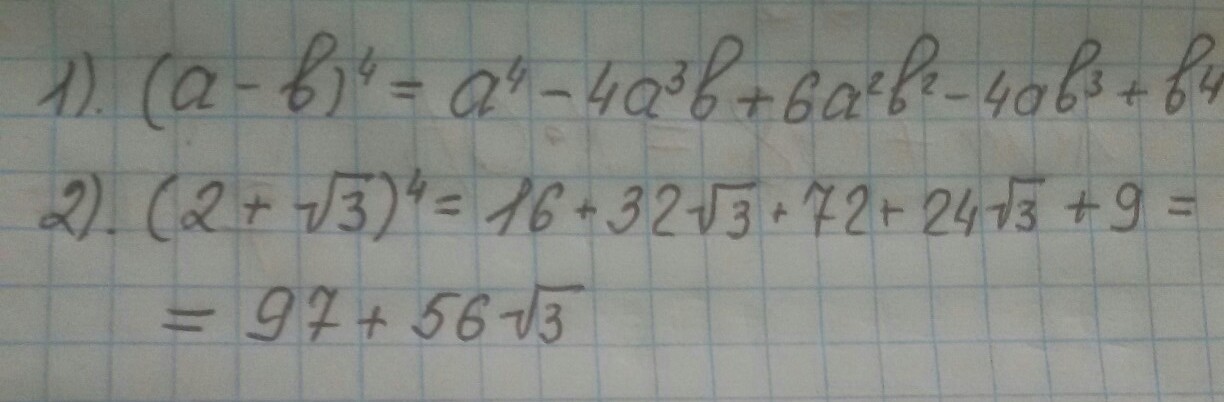 1). (a - b)⁴ = a⁴ - 4a³b + 6a²b² - 4ab³ + b⁴
2). (2 + √3)⁴ = 16 + 32√3 + 72 + 24√3 + 9 =
= 97 + 56√3